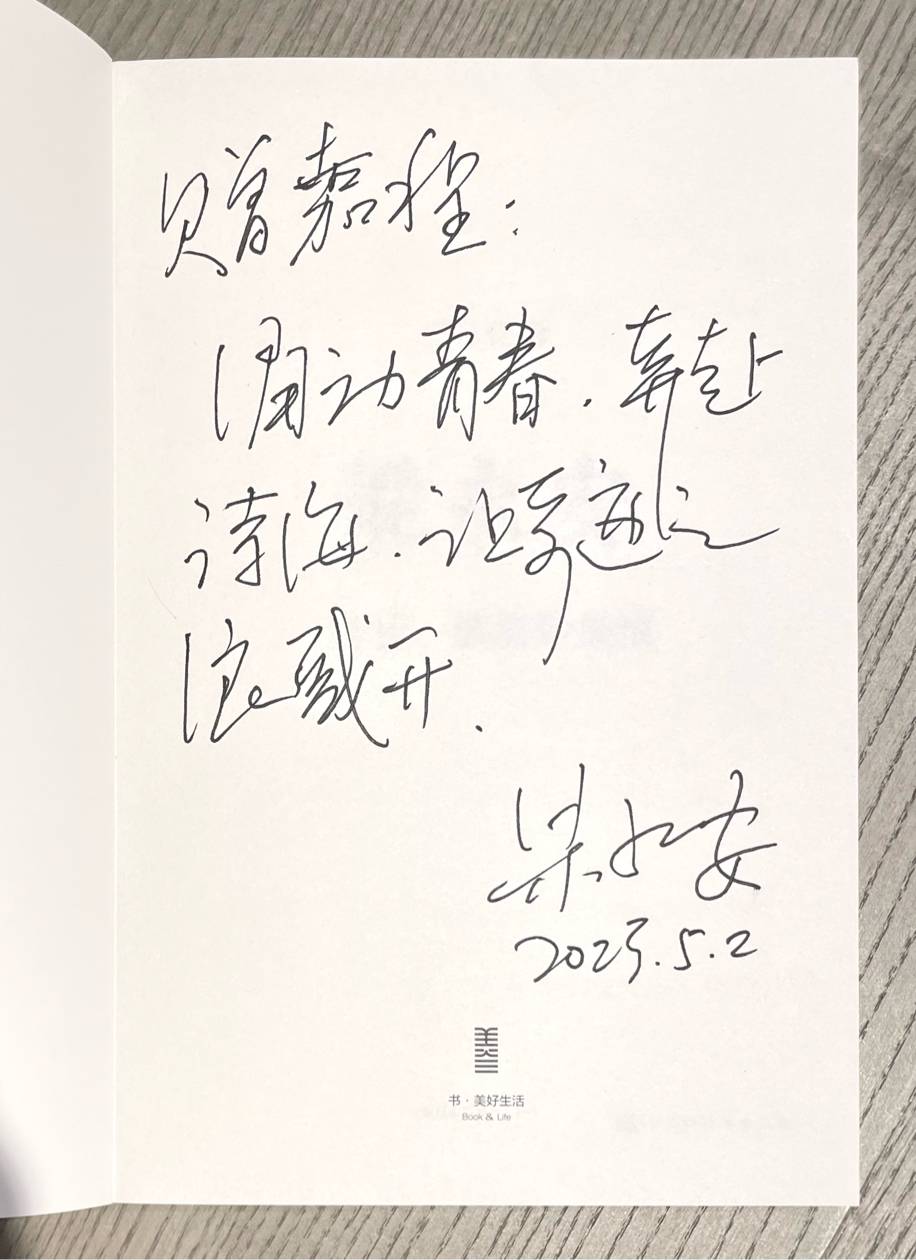 赠嘉程：
涌动青春，奔赴
诗海，让奇迹之
浪盛开.
梁永安
2023.5.2
书·美好生活
Book & Life